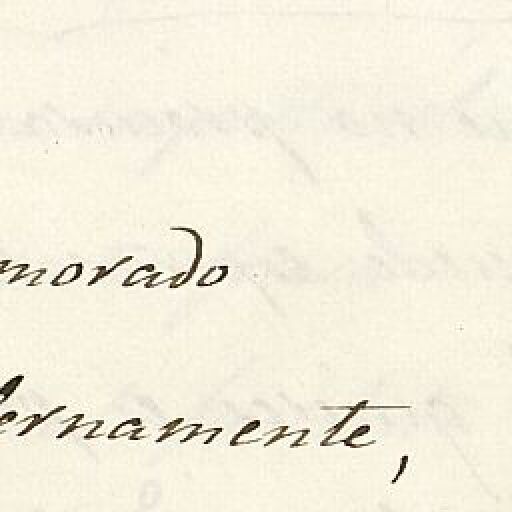 morado
ernamente,